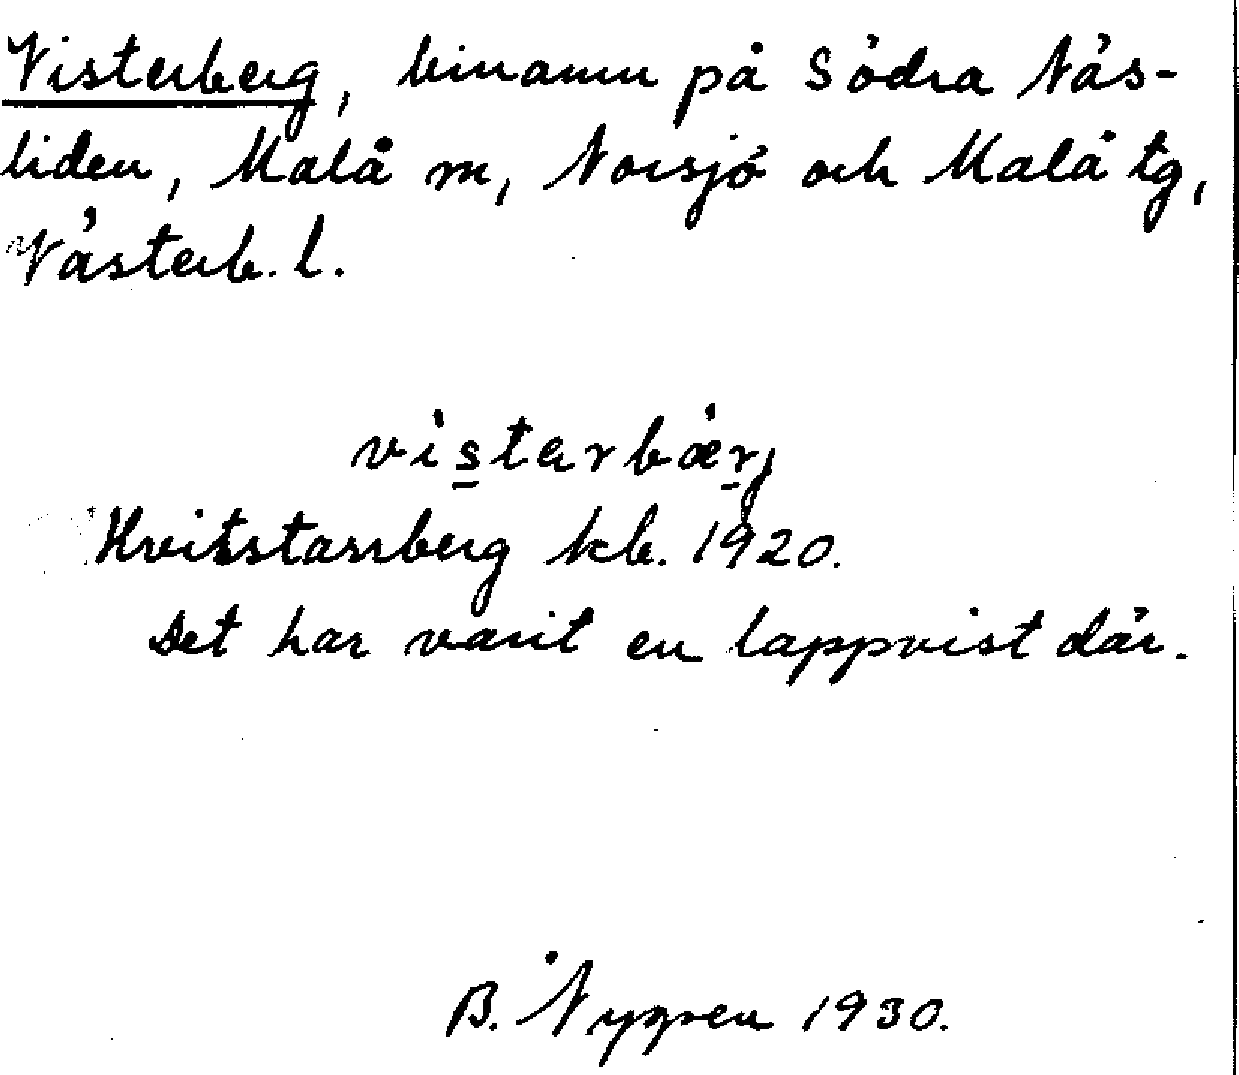 Visterberg, binamn på Södra Näs-
liden, Malå m, Norsjö och Malå tg,
Västerb. l.
vìstarbǽrj
Kvistarrberg kb. 1920.
Det har varit en lappvist där.
B. Nygren 1930.